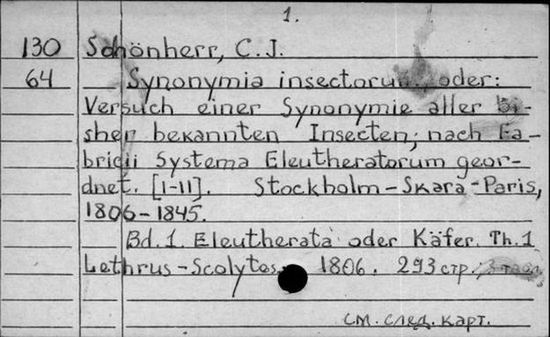 1.
130 Schönherr, C.J.
64 Synonymia insectorum, oder:
Versuch einer Synonymie aller bi-
sher bekannten Insecten; nach Fa-
bricii Systema Eleutheratorum geor-
dnet. [I-II]. Stockholm-Skara-Paris,
1806-1845.
Bd.1. Eleutherata oder Käfer. Th.1
Lethrus-Scolytes. 1806. 293 стр.; 3 табл.
см. след. карт.